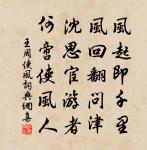 風起即千里
風回翻問津
沈思宦游者
何啻使風人
王周使風詞典網集